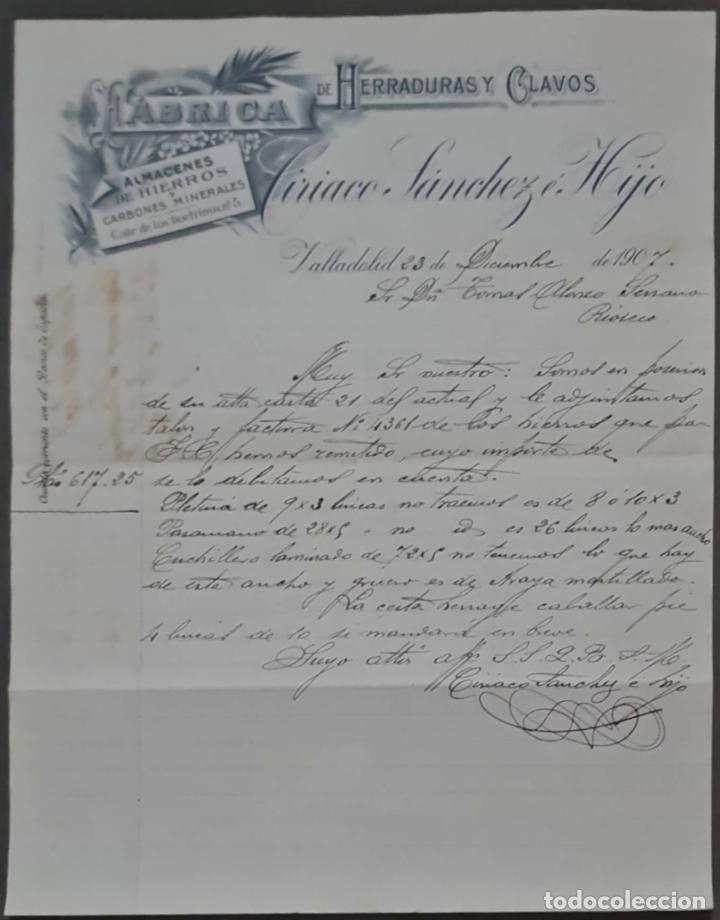 FÁBRICA DE HERRADURAS Y CLAVOS
ALMACENES
DE HIERROS
Y
CARBONES MINERALES
Calle de los Doctrinos, nº 5
Ciriaco Sánchez é Hijo
Valladolid 23 de Diciembre de 1907.
Sr Dn Tomas Alonso Serrano
Rioseco
Muy Sr nuestro: Somos en posesion
de su atta carta 21 del actual y le adjuntamos
talon y factura Nº 4361 de los hierros que por
F. C. hemos remitido, cuyo importe de
Ptas 617.25
se lo debitamos en cuenta.
Pletina de 9x3 lineas no traemos es de 8 ó 10x3
Pasamano de 28x5 " no id es 26 lineas lo mas ancho
Cuchillero laminado de 72x5 no tenemos lo que hay
de este ancho y grueso es de Araya martillado.
La cesta herraje caballar pie
4 lineas de 10 se mandará en breve.
Suyo atto af S. S. Q. B. S. M.
Ciriaco Sanchez é hijo
Cuenta corriente en el Banco de España
todocoleccion.net